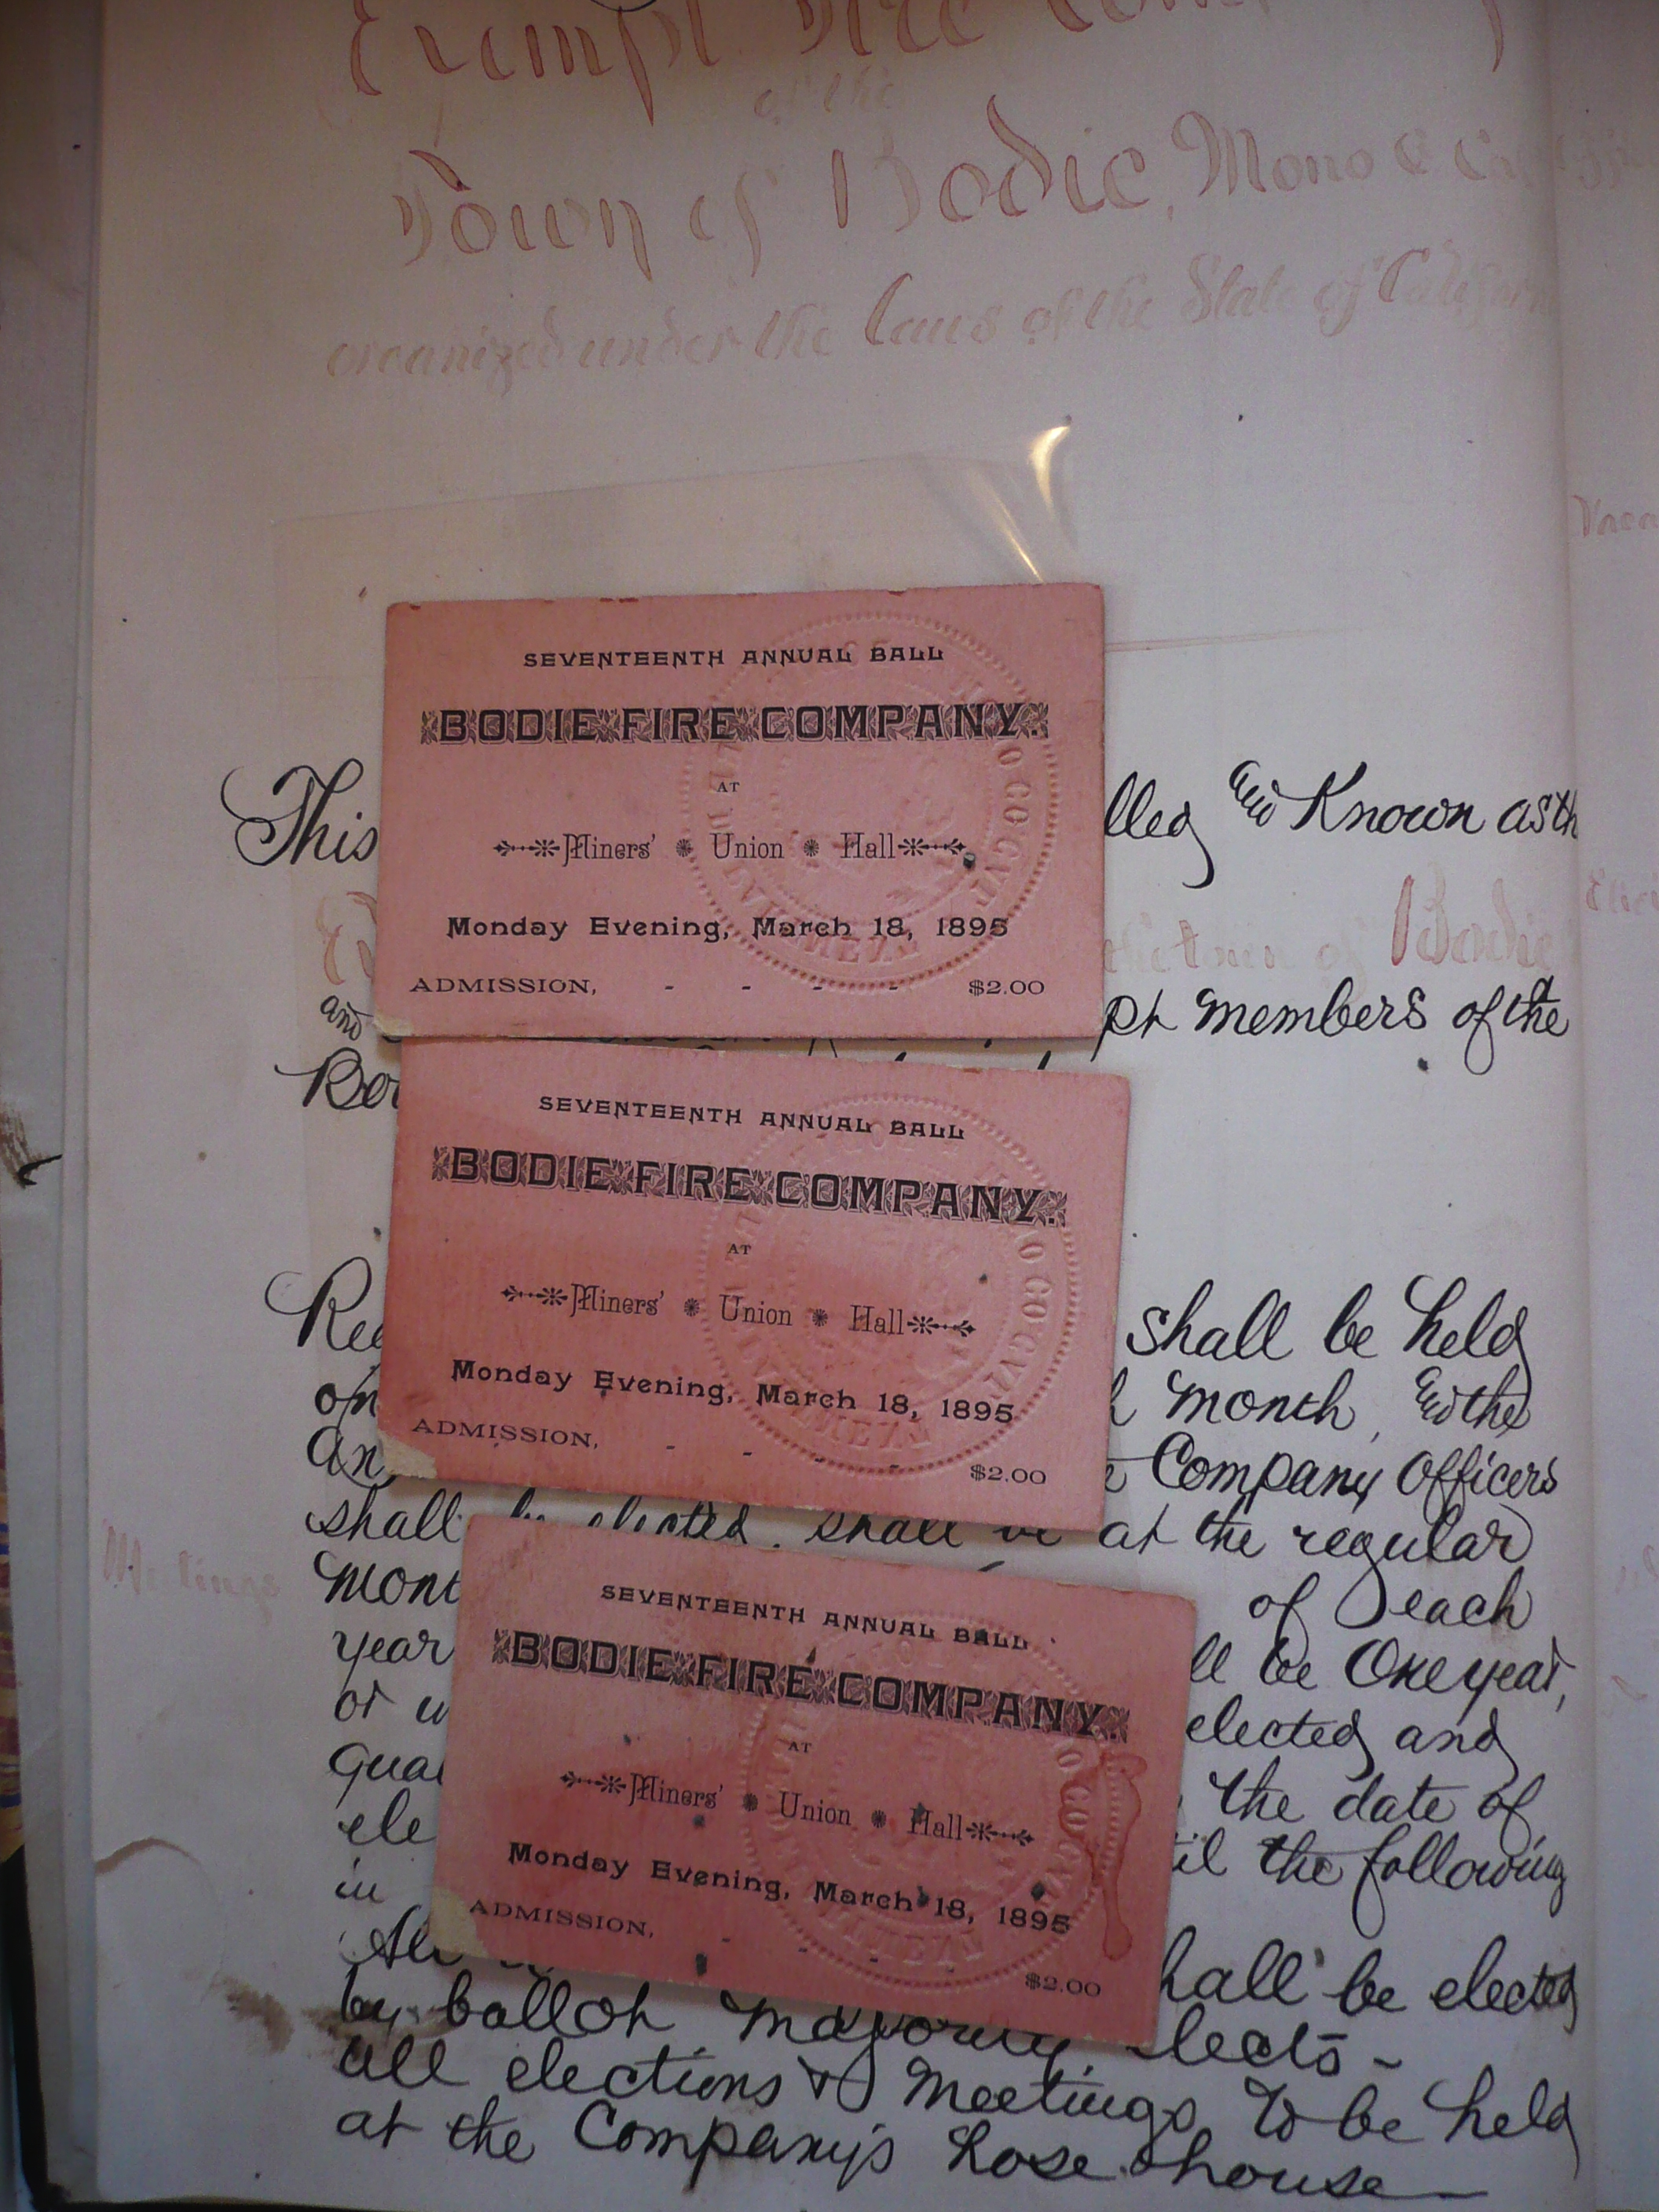 Exempt Fire Com
of the
Town of Bodie, Mono Co
organized under the Laws of the State of Californ
SEVENTEENTH ANNUAL BALL
BODIE FIRE COMPANY.
AT
Miners' Union Hall
Monday Evening, March 18, 1895
ADMISSION, - - - - $2.00
This
lled and Known as th
the town of Bodie
and
pt members of the
Bo
SEVENTEENTH ANNUAL BALL
BODIE FIRE COMPANY.
AT
Miners' Union Hall
Monday Evening, March 18, 1895
ADMISSION, - - - - $2.00
shall be held
on
month, and the
An
Company Officers
shall be elected. shall be at the regular
Meetings
mont
of each
year
ll be One year,
or
elected and
qua
the date of
ele
til the following
in
SEVENTEENTH ANNUAL BALL
BODIE FIRE COMPANY.
AT
Miners' Union Hall
Monday Evening, March 18, 1895
ADMISSION, - - - - $2.00
hall be elected
by ballot majority elects -
all elections & Meetings to be held
at the Company's hose house